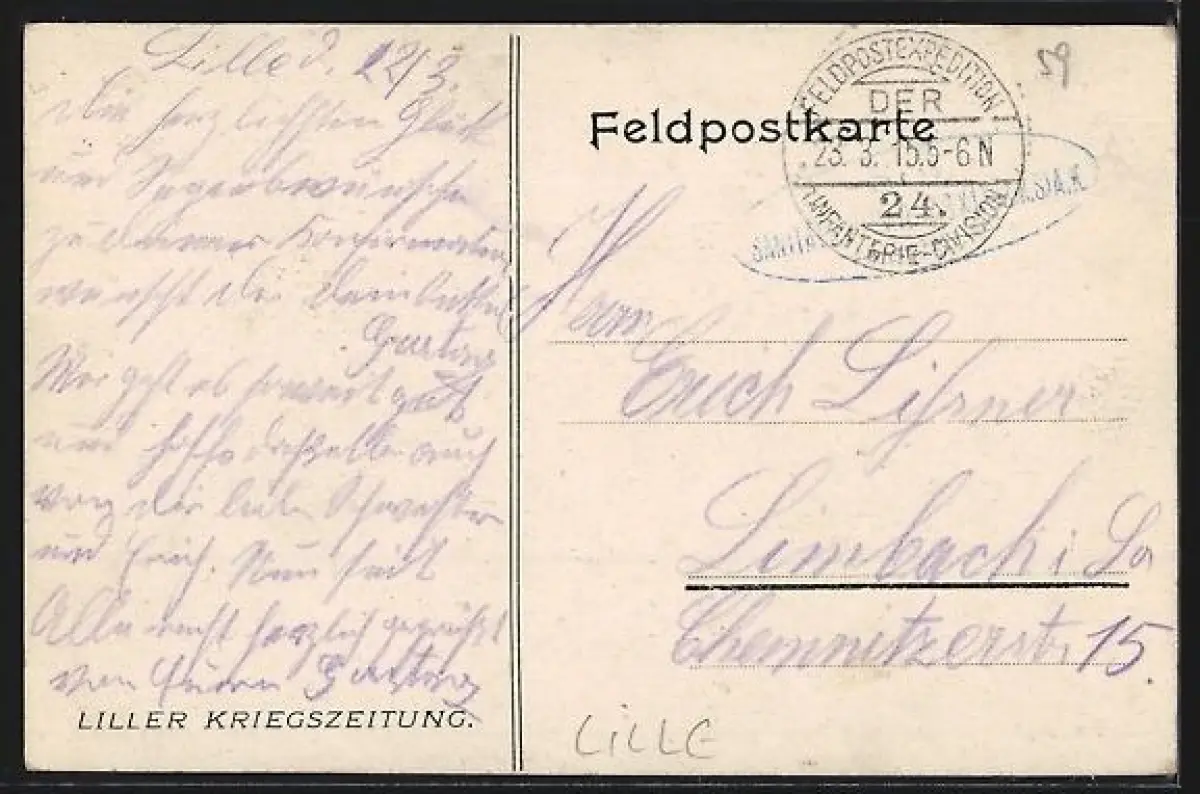 Lille d. 22/3.
Die herzlichsten Glück
und Segenswünsche
zu Deiner Konfirmation
wünscht Dir Dein
Gustav
Mir geht es soweit gut
und hoffe dasselbe auch
von Dir liebe Schwester
und Erich. Nun seid
Alle recht herzlich gegrüßt
von Euern Gustav
LILLER KRIEGSZEITUNG.
Feldpostkarte
FELDPOSTEXPEDITION
DER
23. 3. 15. 5-6 N
24.
INFANTERIE-DIVISION
59
Herrn
Erich
Limbach i Sa
Chemnitzerstr. 15.
LILLE